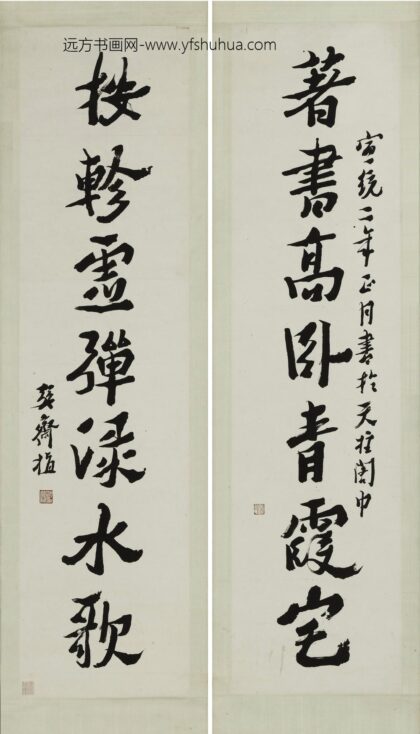 远方书画网-www.yfshuhua.com
著書高臥青霞宅
宣統二年正月書於天柱閣中
軫靈彈淥水歌
齋植